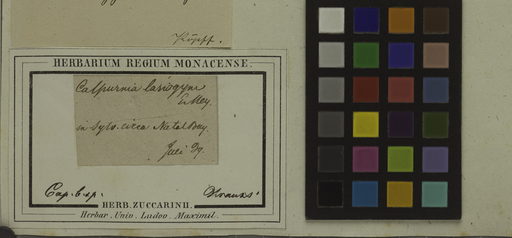 Köppf.
HERBARIUM REGIUM MONACENSE.
Calpurnia lasiogyne
E. Mey.
in sylv. circa Natal Bay.
Juli 39.
Cap. b. sp.
Krauss
HERB. ZUCCARINII.
Herbar. Univ. Ludov. Maximil.